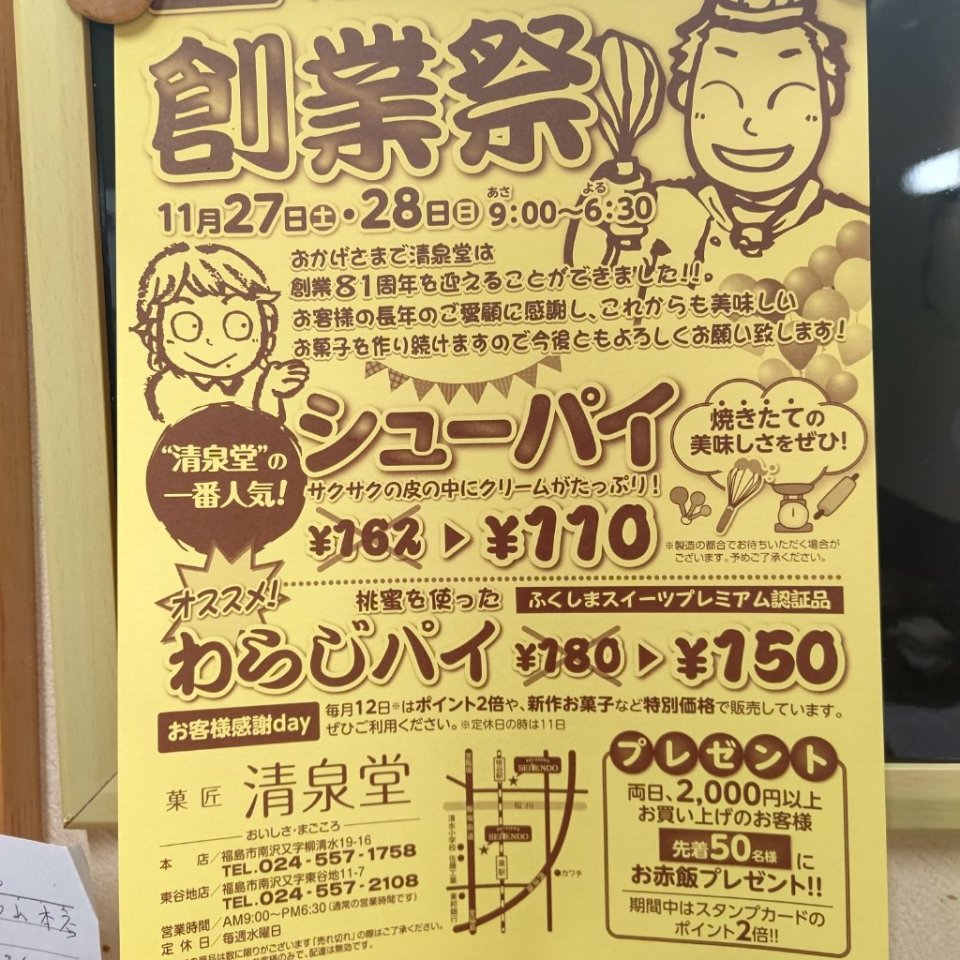 創業祭
11月27日㊏・28日㊐ 9:00～6:30
あさ よる
おかげさまで清泉堂は
創業81周年を迎えることができました!!。
お客様の長年のご愛顧に感謝し、これからも美味しい
お菓子を作り続けますので今後ともよろしくお願い致します!
"清泉堂"の
一番人気!
シューパイ
サクサクの皮の中にクリームがたっぷり!
¥162 ▶ ¥110
焼きたての
美味しさをぜひ!
※製造の都合でお待ちいただく場合が
ございます。予めご了承ください。
オススメ!
桃蜜を使った ふくしまスイーツプレミアム認証品
わらじパイ ¥180 ▶ ¥150
お客様感謝day
毎月12日※はポイント2倍や、新作お菓子など特別価格で販売しています。
ぜひご利用ください。※定休日の時は11日
菓匠 清泉堂
おいしさ・まごころ
本店／福島市南沢又字柳清水19-16
TEL.024-557-1758
東谷地店／福島市南沢又字東谷地11-7
TEL.024-557-2108
営業時間／AM9:00～PM6:30（通常の営業時間です）
定休日／毎週水曜日
商品は数に限りがございます「売れ切れ」の際はご了承ください。
お客様のみで、配達は無効です。
SEISENDO
笹谷駅
松川
SEISENDO
カワチ
東邦銀行
プレゼント
両日、2,000円以上
お買い上げのお客様
先着50名様に
お赤飯プレゼント!!
期間中はスタンプカードの
ポイント2倍!!